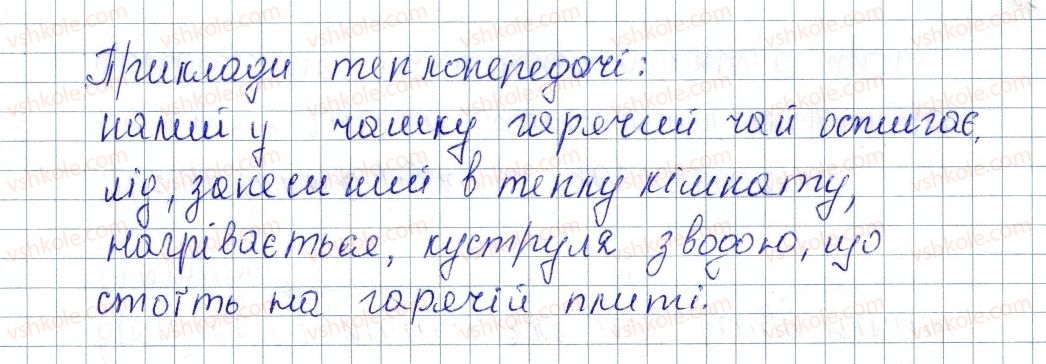 Приклади теплопередачі:
налий у чашку гарячий чай остигає,
лід, занесиний в теплу кімнату,
нагрівається, куструля з водою, що
стоїть на гарячій плиті.